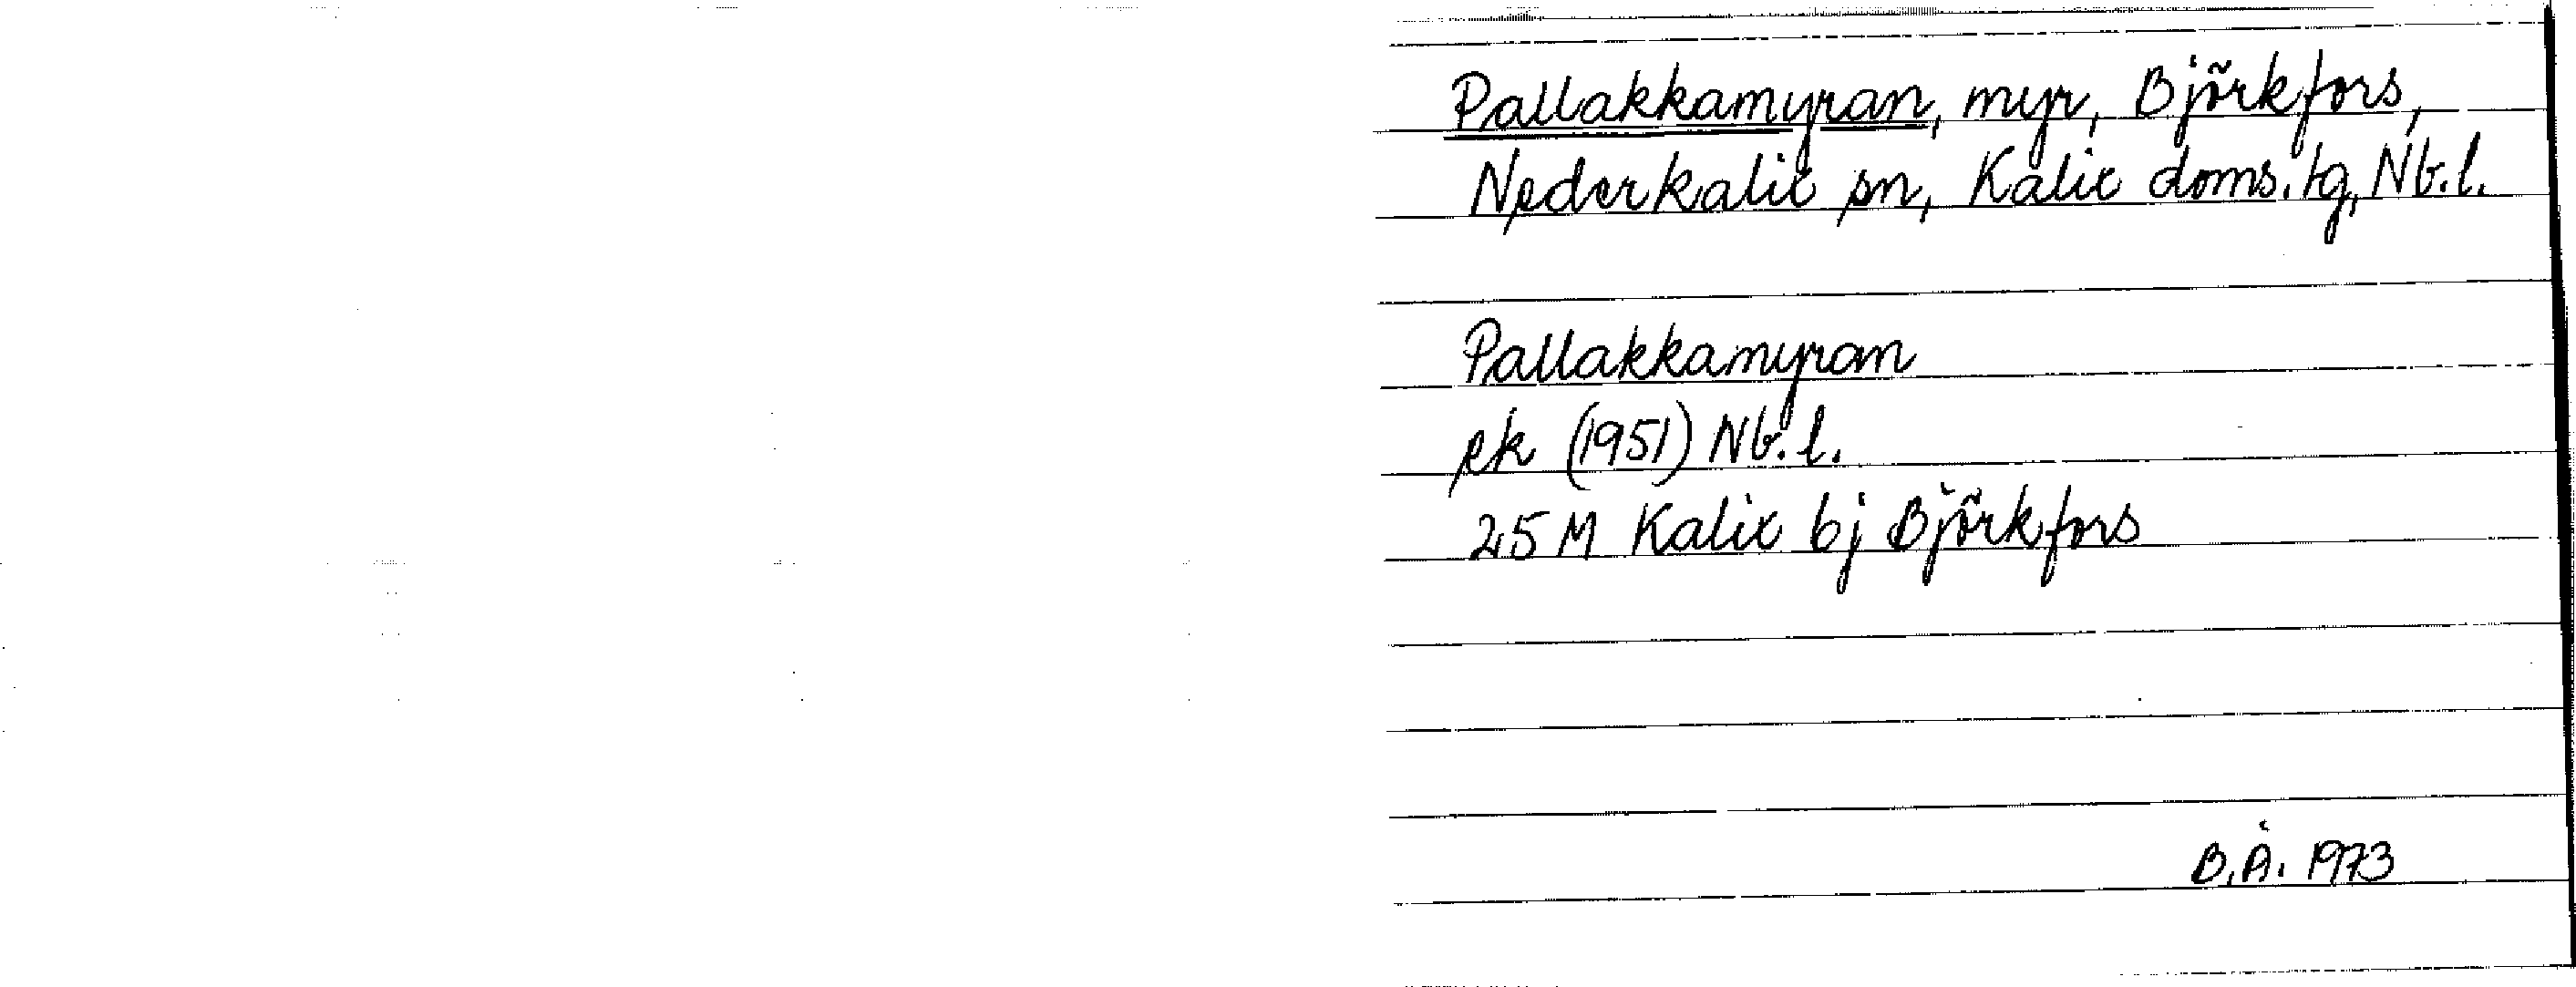 Pallakkamyran, myr, Björkfors,
Nederkalix sn, Kalix doms.tg, Nb.l.
Pallakkamyran
ek (1951) Nb.l.
25 M Kalix bj Björkfors
B.Å. 1973